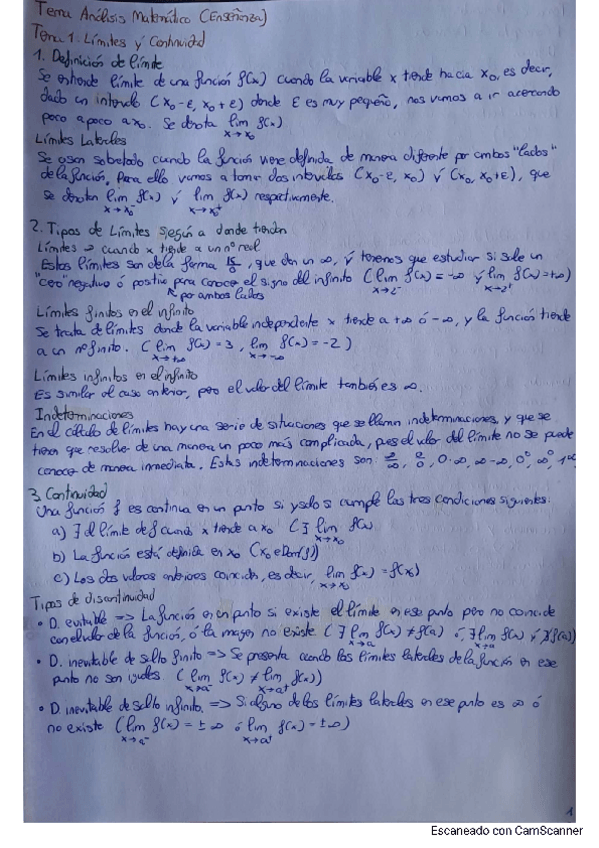 Tema Análisis Matemático (Enseñanza)
Tema 1: Límites y Continuidad
1. Definición de límite
Se entiende límite de una función f(x) cuando la variable x tiende hacia x₀, es decir,
dado un intervalo (x₀-ε, x₀+ε) donde ε es muy pequeño, nos vamos a ir acercando
poco a poco a x₀. Se denota lim f(x)
x→x₀
Límites Laterales
Se usan sobretodo cuando la función viene definida de manera diferente por ambos "lados"
de la función. Para ello vamos a tomar dos intervalos (x₀-ε, x₀) y (x₀, x₀+ε), que
se denotan lim f(x) y lim f(x) respectivamente.
x→x₀⁻ x→x₀⁺
2. Tipos de Límites según a donde tiendan
Límites → cuando x tiende a un nº real
Estos límites son de la forma k/0, que dan un ∞, y tenemos que estudiar si sale un
"cero" negativo ó positivo para conocer el signo del infinito (lim f(x) = -∞ y lim f(x) = +∞)
x→2⁻ x→2⁺
por ambos lados
Límites finitos en el infinito
Se trata de límites donde la variable independiente x tiende a +∞ ó -∞, y la función tiende
a un nº finito. (lim f(x) = 3, lim f(x) = -2)
x→+∞ x→-∞
Límites infinitos en el infinito
Es similar al caso anterior, pero el valor del límite también es ∞.
Indeterminaciones
En el cálculo de límites hay una serie de situaciones que se llaman indeterminaciones, y que se
tienen que resolver de una manera un poco más complicada, pues el valor del límite no se puede
conocer de manera inmediata. Estas indeterminaciones son: ∞/∞, 0/0, 0·∞, ∞-∞, 0⁰, ∞⁰, 1^∞
3. Continuidad
Una función f es continua en un punto si y solo si cumple las tres condiciones siguientes:
a) ∃ el límite de f cuando x tiende a x₀ (∃ lim f(x)
x→x₀
b) La función está definida en x₀ (x₀ ∈ Dom(f))
c) Los dos valores anteriores coinciden, es decir, lim f(x) = f(x₀)
x→x₀
Tipos de discontinuidad
• D. evitable => La función en un punto si existe el límite en ese punto pero no coincide
con el valor de la función, ó la imagen no existe (∃ lim f(x) ≠ f(a) ó ∃ lim f(x) y ∄ f(a))
x→a x→a
• D. inevitable de salto finito => Se presenta cuando los límites laterales de la función en ese
punto no son iguales. (lim f(x) ≠ lim f(x))
x→a⁻ x→a⁺
• D. inevitable de salto infinito. => Si alguno de los límites laterales en ese punto es ∞ ó
no existe (lim f(x) = ±∞ ó lim f(x) = ±∞)
x→a⁻ x→a⁺
1
Escaneado con CamScanner